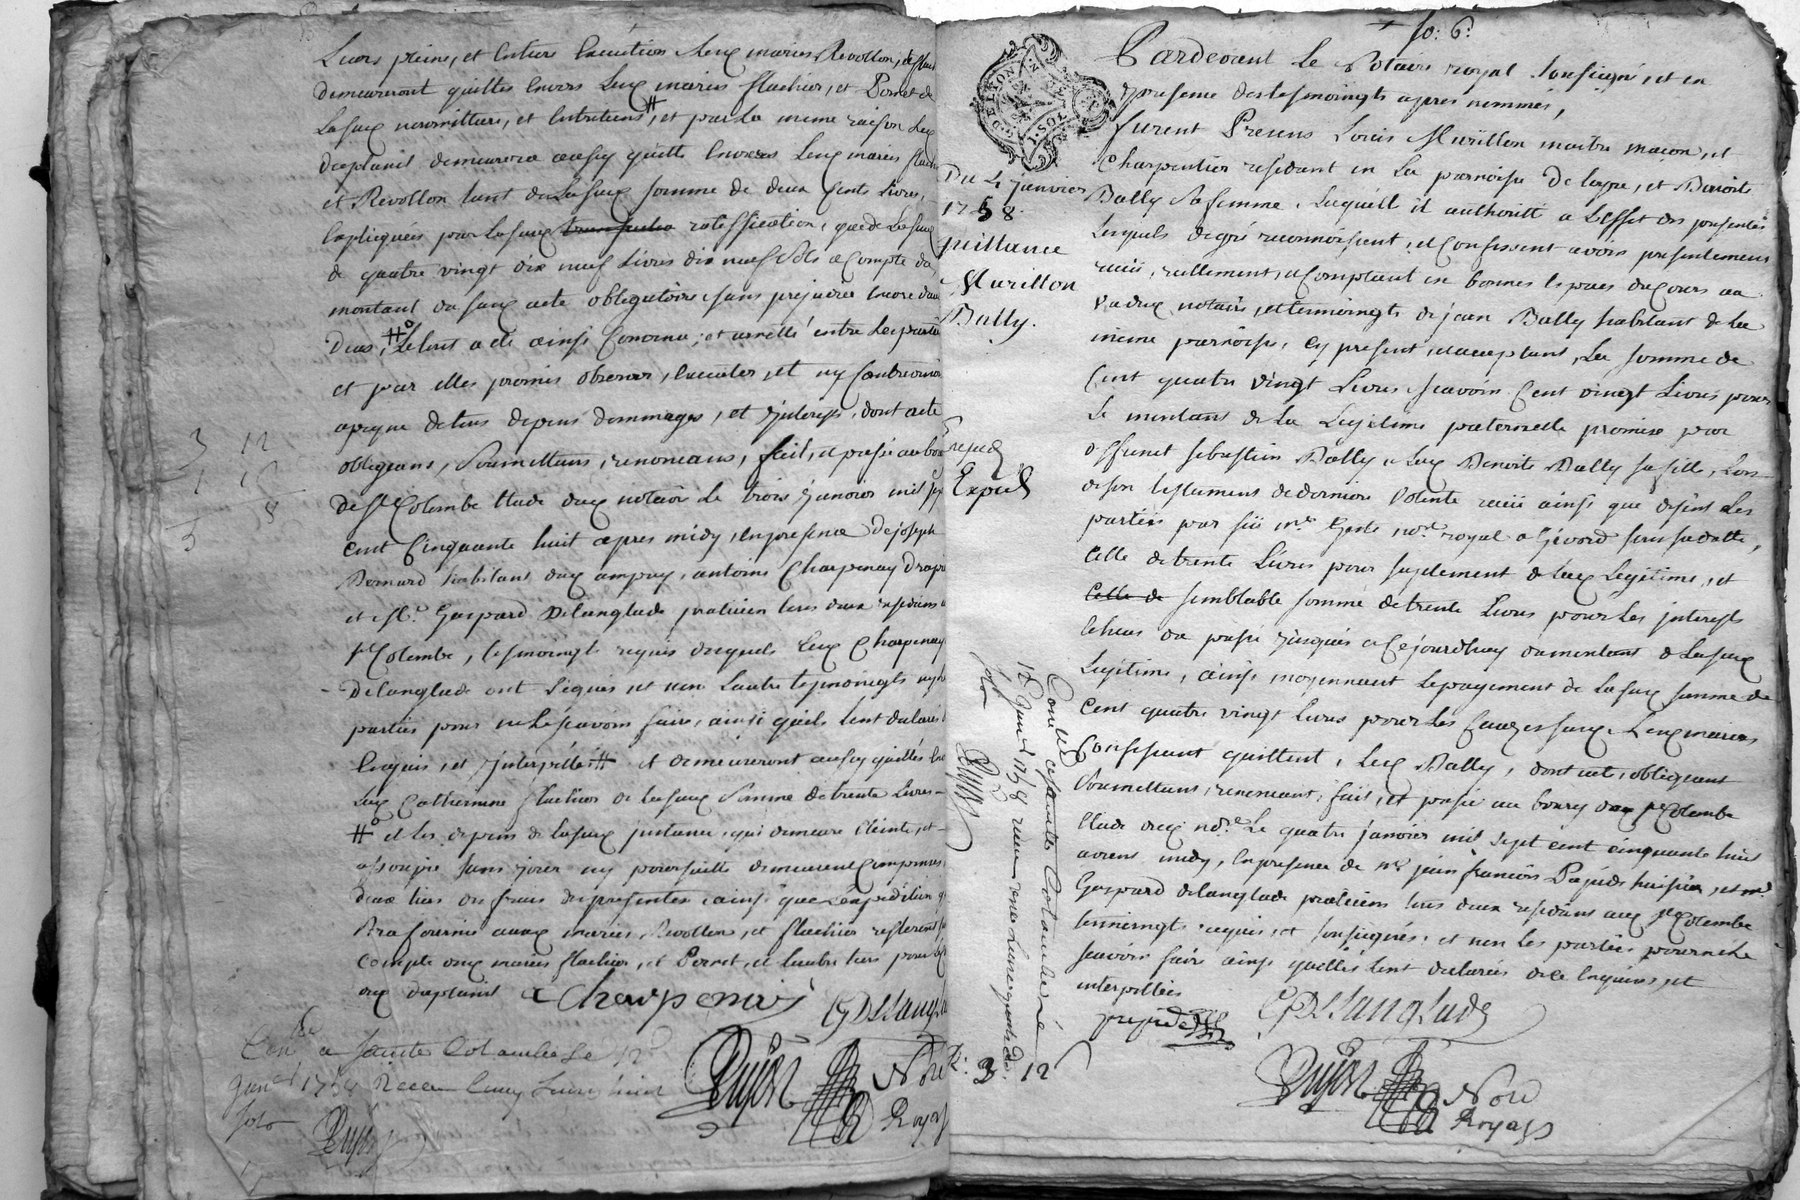 Leurs pleine, et entiere execution Lesd mariés Revollon,
demeureront quittes envers Lesd mariés flachier, et Pernet de
Lasusd nourriture, et entretiens # et par La meme raison Led
duplanil demeurera aussy quitte envers Lesd mariés
et Revollon tant de Lasusd somme de deux Cents Livres,
expliquée pour Lasusd ratiffication, que de Lasusd
de quatre vingt dix neuf Livres dix neuf sols a Compte du
montant du susd acte obligatoire sans prejudice encore
Le tout a eté ainsi Convenu, et arretté entre Les parties
et par elles promis observer, executer, et ny Contrevenir
apeyne de tous depens dommages, et jnterests, dont acte
obligeans, soumettans, renonceans, fait, et passé au bourg
de Ste Colombe Etude dud notaire Le trois janvier mil sept
cent Cinquante huit apres midy, en presence de joseph
Bernard habitant dud ampuy, antoine Charpenay
et Mr. Gaspard Delanglade praticien tous deux residens a
Ste Colombe, tesmoingts requis desquels Lesd Charpenay
Delanglade ont signés, et non Lautre tesmoingts ny
parties pour ne Le sçavoir faire, ainsi quils lont declaré
Enquis, et jnterpellés # et demeureront aussy quittes
Lad Catherine flachier de Lasusd Somme de trente Livres
# et les depens de Lasusd jnstance, qui demeure eteinte, et
assoupie sans
deux tiers du frais des presentes, ainsi que Lexpedition
Bra fournie auxd mariés, Revollon, et flachier resteront
compte dud mariés flachier, et Pernet, et Lautre tiers pour
dud duplanil
Charpenais GDelanglade
Conlé a Sainte Colombe Le 12e
Janer 1758 Receu Cinq Livres huit
sols
Dujon
Dujon Nore
Royal
3 12
fo: 6e
Pardevant Le Notaire royal soussigné, et en
presence des tesmoingts apres nommés,
furent Presens Louis Murillon maitre maçon, et
Charpentier residant en La parroisse de Loyre, et Benoite
Bally Sa femme, Laquelle il authorise a Leffet des presentes
Lesquels de gré reconnoissent, et Confessent avoir presentement
receu, reellement, et Comptant en bonnes especes du Cours au
vu dud notaire, et tesmoingts de jean Bally habitant de La
meme parroisse, cy present, et acceptant, La somme de
Cent quatre vingt Livres sçavoir Cent vingt Livres pour
Le montant de La Legitime paternelle promise par
deffunct sebastien Bally, a Lad Benoite Bally sa fille, Lors
de son testament de derniere volonté receu ainsi que disent Les
parties par feu me Gente nore royal a Givord sous sa datte,
Celle de trente Livres pour suplement de Lad Legitime, et
Celle de semblable somme de trente Livres pour Les jnterests
echeus du passé jusques a Cejourdhuy du montant de Lasusd
Legitime, ainsi moyennant Le payement de Lasusd somme de
Cent quatre vingt Livres pour Les Causes susd Lesd mariés
Confessant quittent, Led Bally, dont acte, obligeant
soumettans, renonceant, fait, et passé au bourg de Ste Colombe
Etude dud nore. Le quatre janvier mil sept cent cinquante huit
avant midy, en presence de me jean françois Pejude huissier, et me
Gaspard delanglade praticien tous deux residans aud Ste Colombe
tesmoingts requis, et soussignés, et non Les parties pour ne Le
sçavoir faire ainsi quelles lont declarées de ce Enquises, et
interpellées
GDelanglade
Dujon Nore
Royal
Du 4 janvier
1758.
quittance
Murillon
Bally.
Exped
Conlé a Sainte Colombe Le
12e Janer 1758 receu
sols
Dujon
R: 3 12